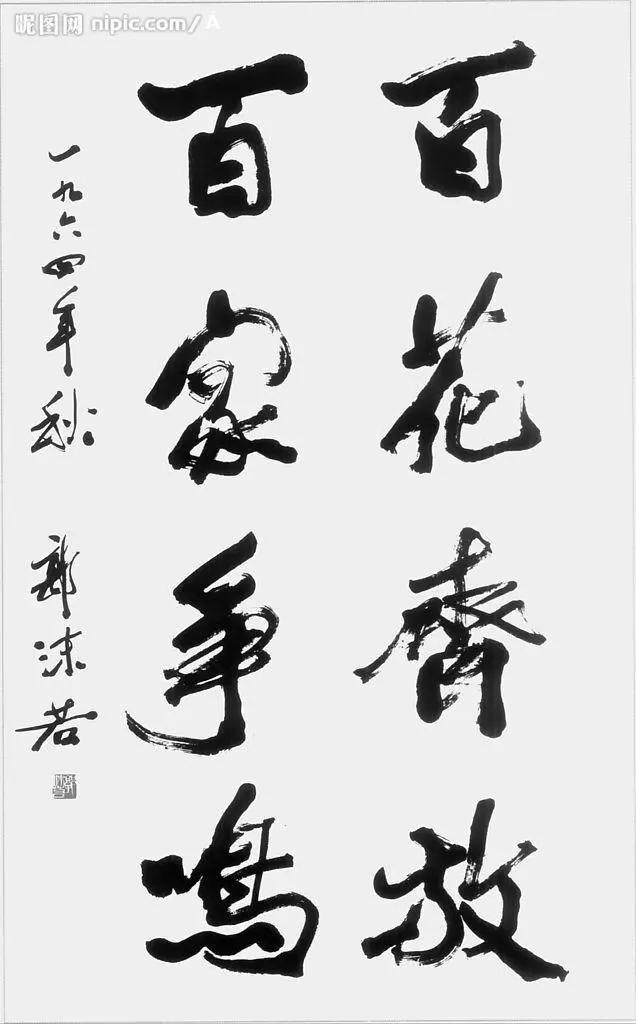 百花齊放
百家争鳴
一九六四年秋
郭沫若
昵图网 nipic.com/A